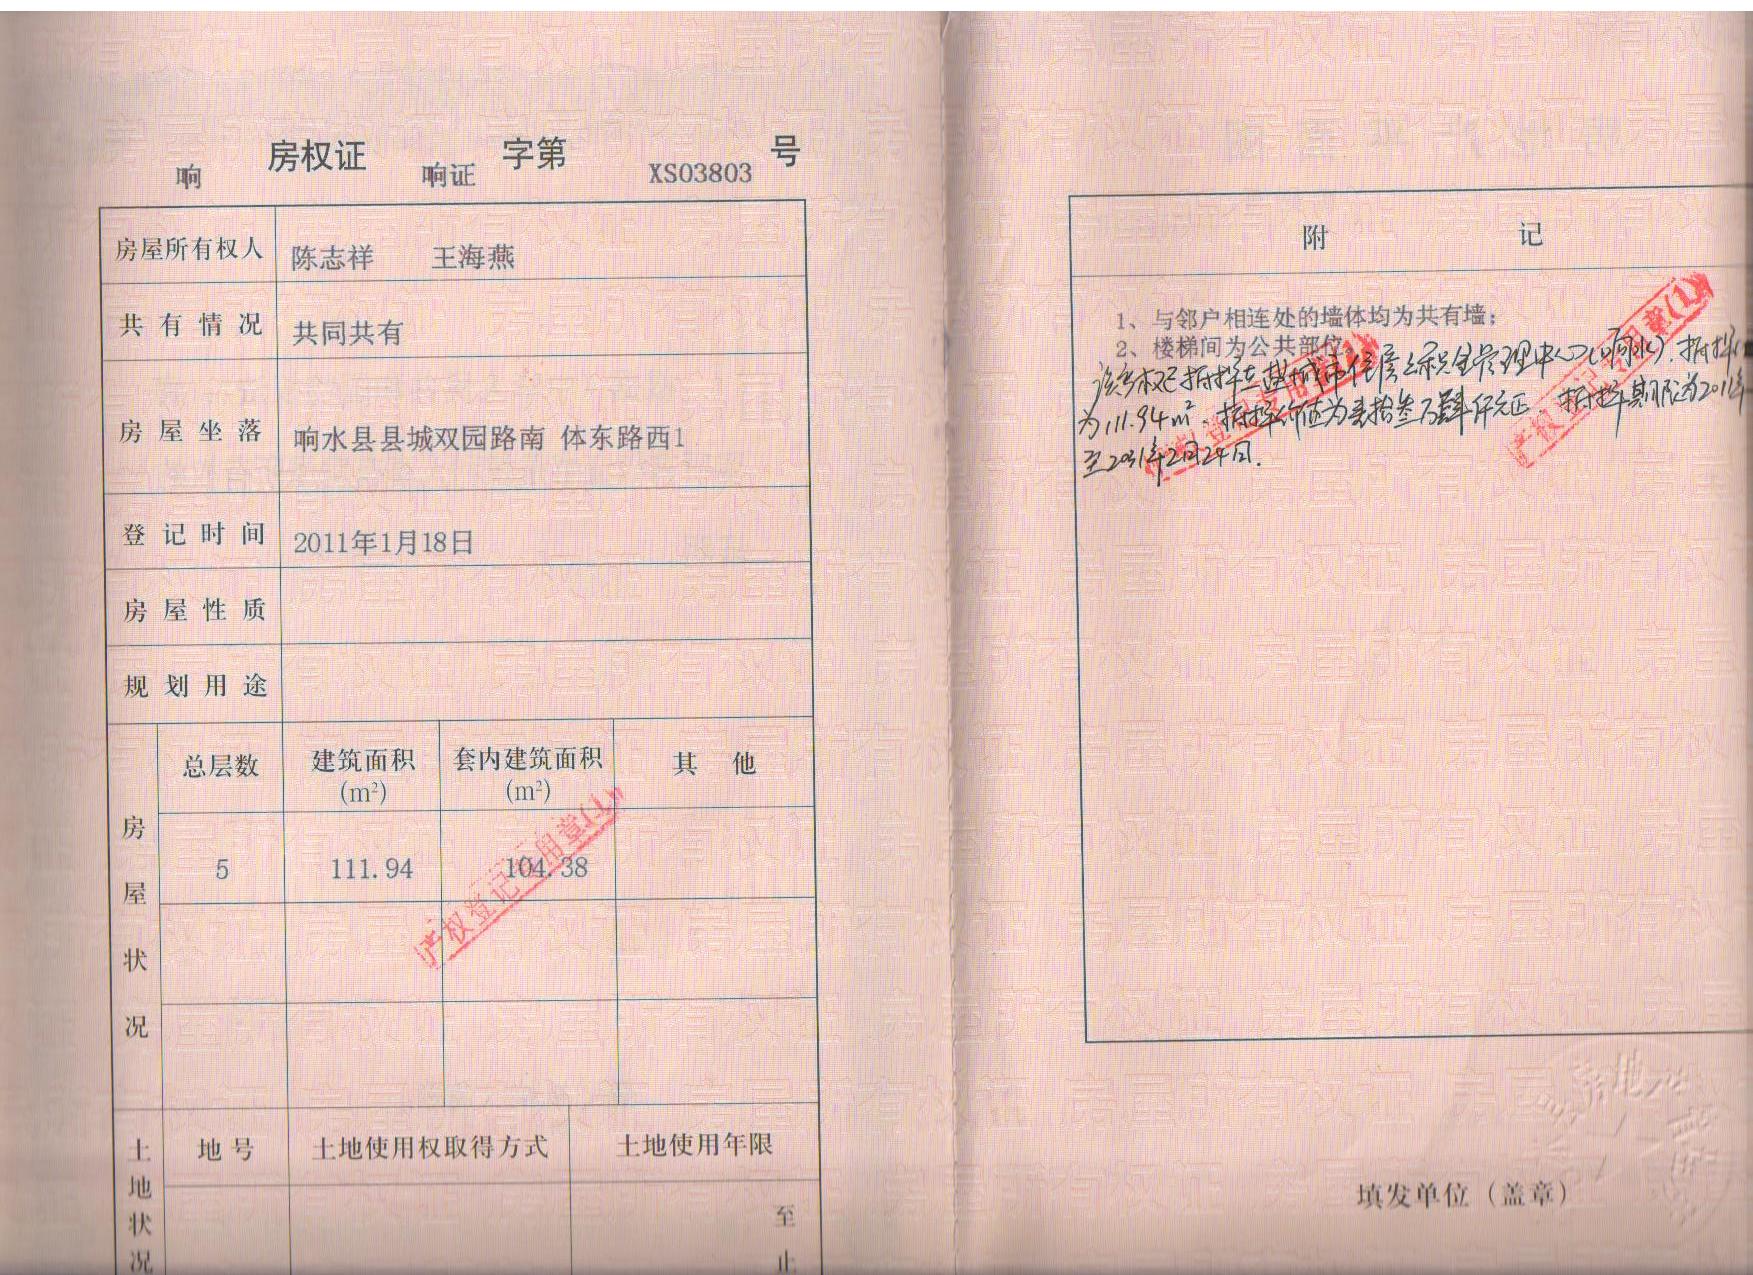 响 房权证 响证 字第 XS03803 号
房屋所有权人 陈志祥 王海燕
共有情况 共同共有
房屋坐落 响水县县城双园路南 体东路西1
登记时间 2011年1月18日
房屋性质
规划用途
房屋状况
总层数 建筑面积(m²) 套内建筑面积(m²) 其他
5 111.94 104.38
产权登记专用章(1)
土地状况
地号 土地使用权取得方式 土地使用年限
至
止
附 记
1、与邻户相连处的墙体均为共有墙;
2、楼梯间为公共部位。
该房权证抵押在盐城市住房公积金管理中心(响水).抵押
为111.94m².抵押价值为 拾叁万肆仟元正.抵押期限为2011年
至2031年2月24日.
产权登记专用章(1)
产权登记专用章(1)
填发单位(盖章)